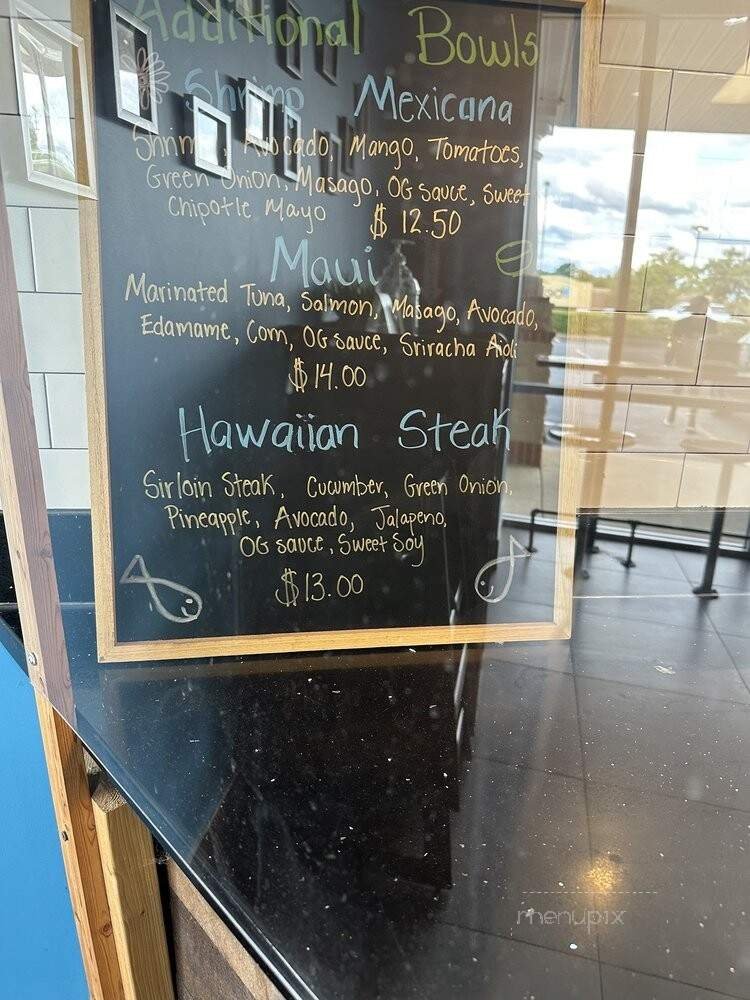 Additional Bowls
Shrimp Mexicana
Shrimp, Avocado, Mango, Tomatoes,
Green Onion, Masago, OG sauce, Sweet
Chipotle Mayo $12.50
Maui
Marinated Tuna, Salmon, Masago, Avocado,
Edamame, Corn, OG sauce, Sriracha Aioli
$14.00
Hawaiian Steak
Sirloin Steak, Cucumber, Green Onion,
Pineapple, Avocado, Jalapeno,
OG sauce, Sweet Soy
$13.00
menupix